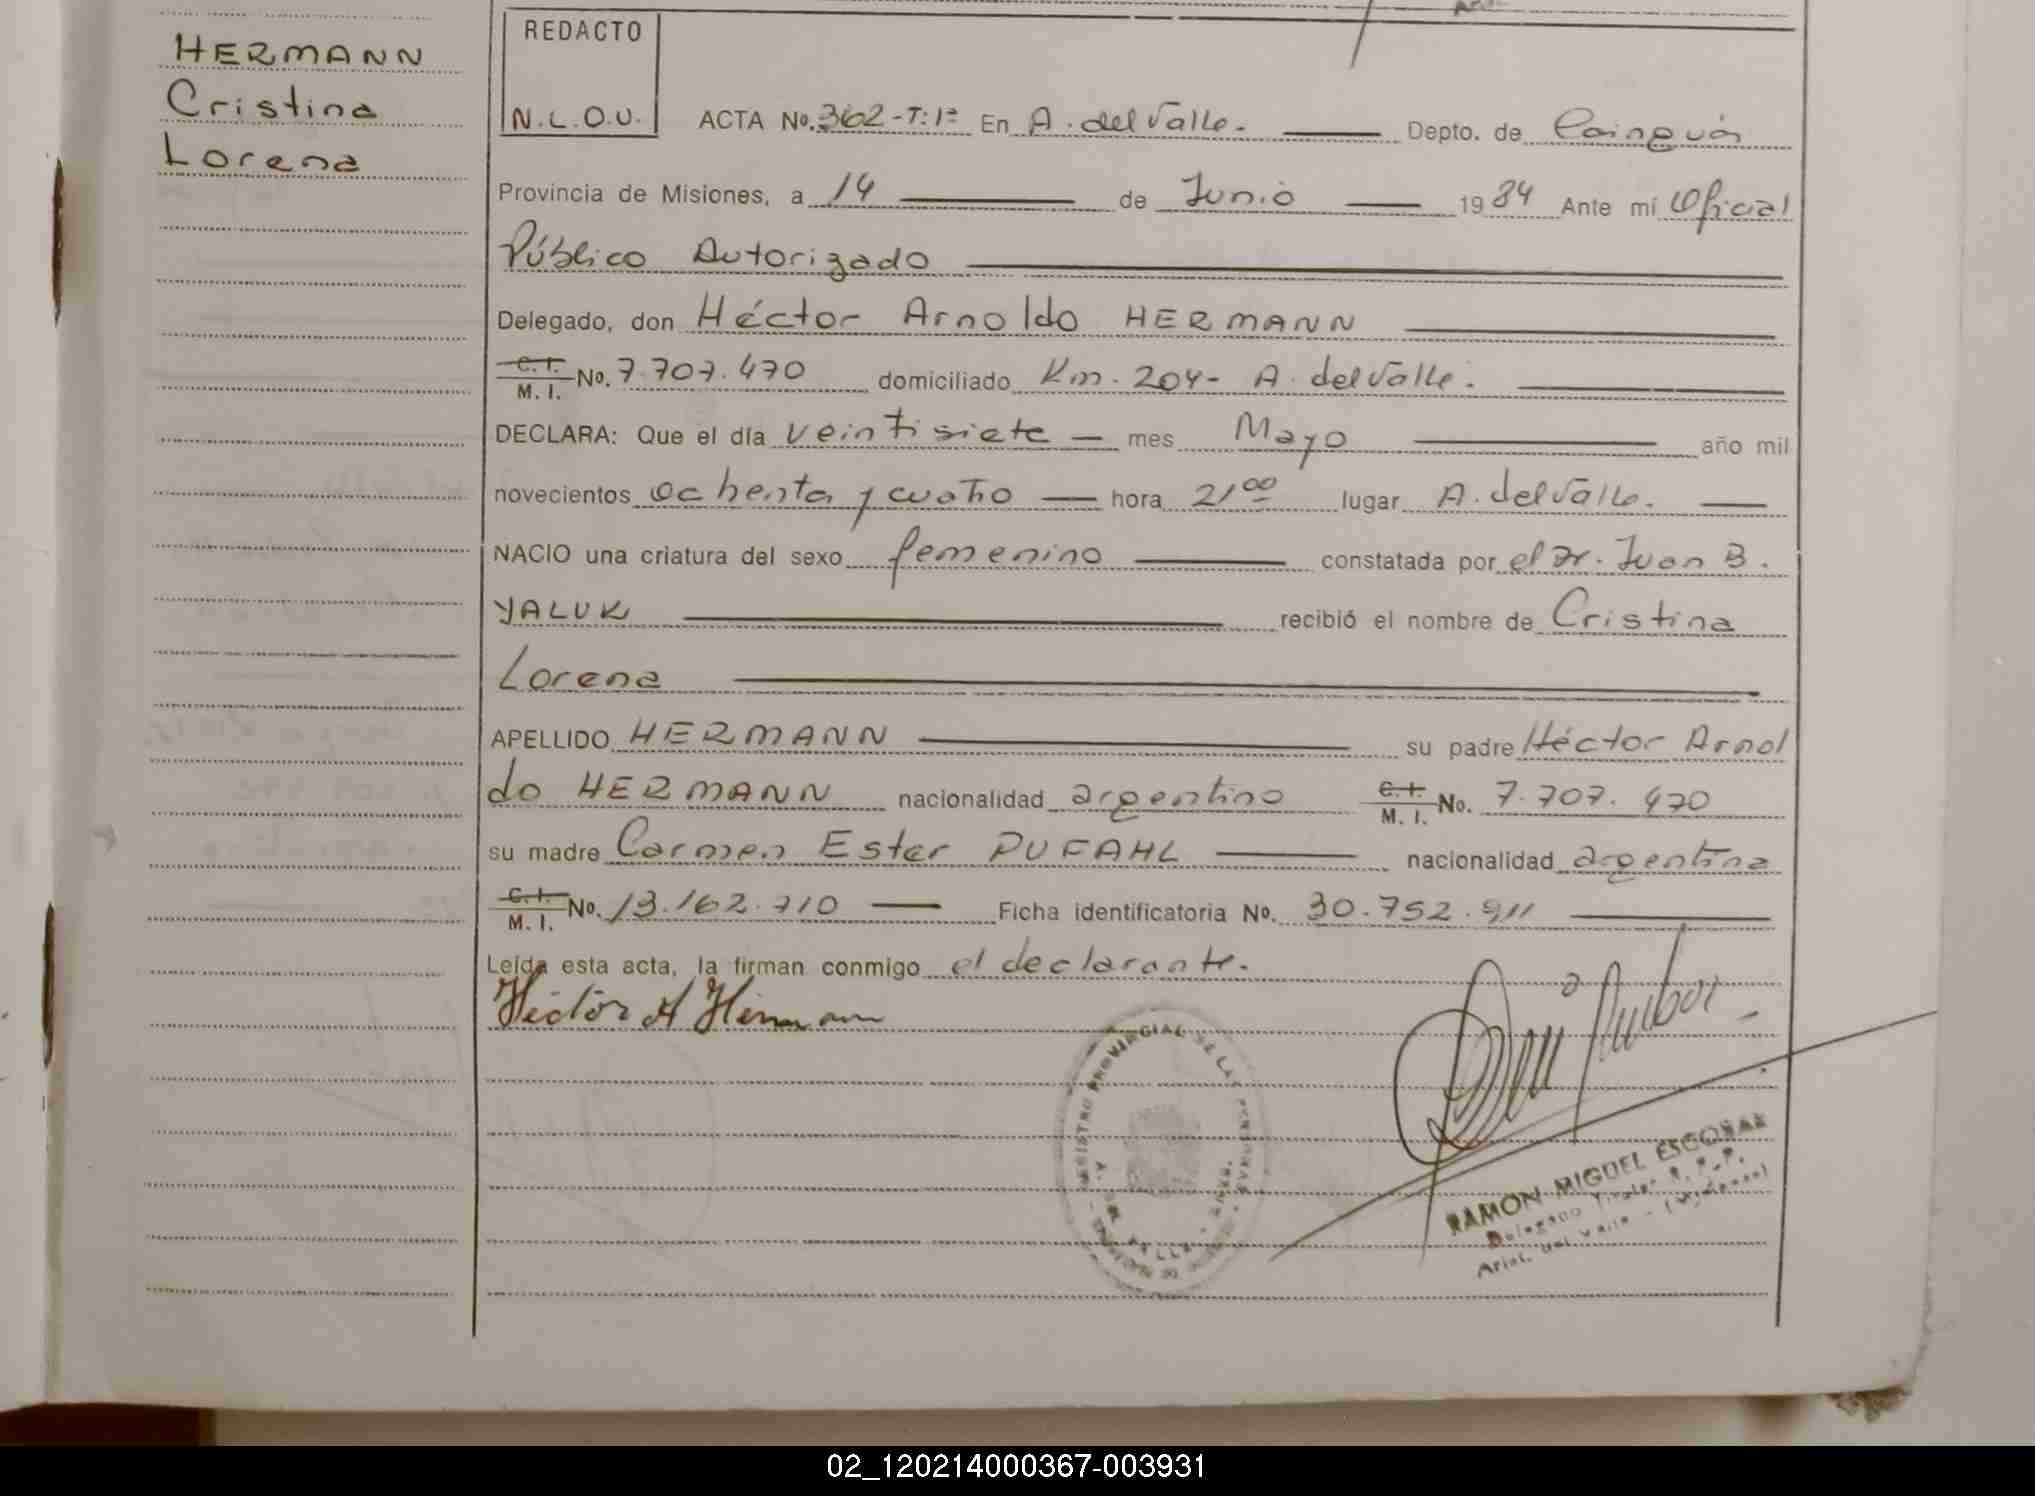 HERMANN
Cristina
Lorena
REDACTO
N.L.O.U.
ACTA No. 362-T:1º En A. del Valle. Depto. de Cainguás
Provincia de Misiones, a 14 de Junio 1984 Ante mí Oficial
Público Autorizado
Delegado, don Héctor Arnoldo HERMANN
C.I. M.I. No. 7.707.470 domiciliado Km. 204- A. del Valle.
DECLARA: Que el día veintisiete mes Mayo año mil
novecientos ochenta y cuatro hora 21 00 lugar A. del Valle.
NACIO una criatura del sexo femenino constatada por el Dr. Juan B.
YALUK recibió el nombre de Cristina
Lorena
APELLIDO HERMANN su padre Héctor Arnol
do HERMANN nacionalidad argentino C.I. M.I. No. 7.707.470
su madre Carmen Ester PUFAHL nacionalidad argentina
C.I. M.I. No. 13.162.710 Ficha identificatoria No. 30.752.911
Leída esta acta, la firman conmigo el declarante.
Héctor A Hermann
REGISTRO PROVINCIAL DE LAS PERSONAS
RAMON MIGUEL ESCOBAR
Delegado Titular R. P. P.
Arist. del Valle - (Misiones)
02_120214000367-003931